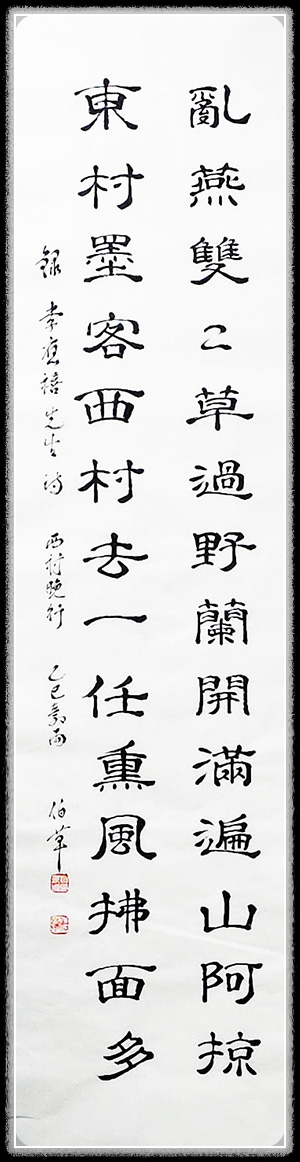 亂燕雙〻草過野蘭開滿遍山阿掠
東村墨客西村去一任熏風拂面多
錄李應先生詩 西村晚行 乙巳雨 伯